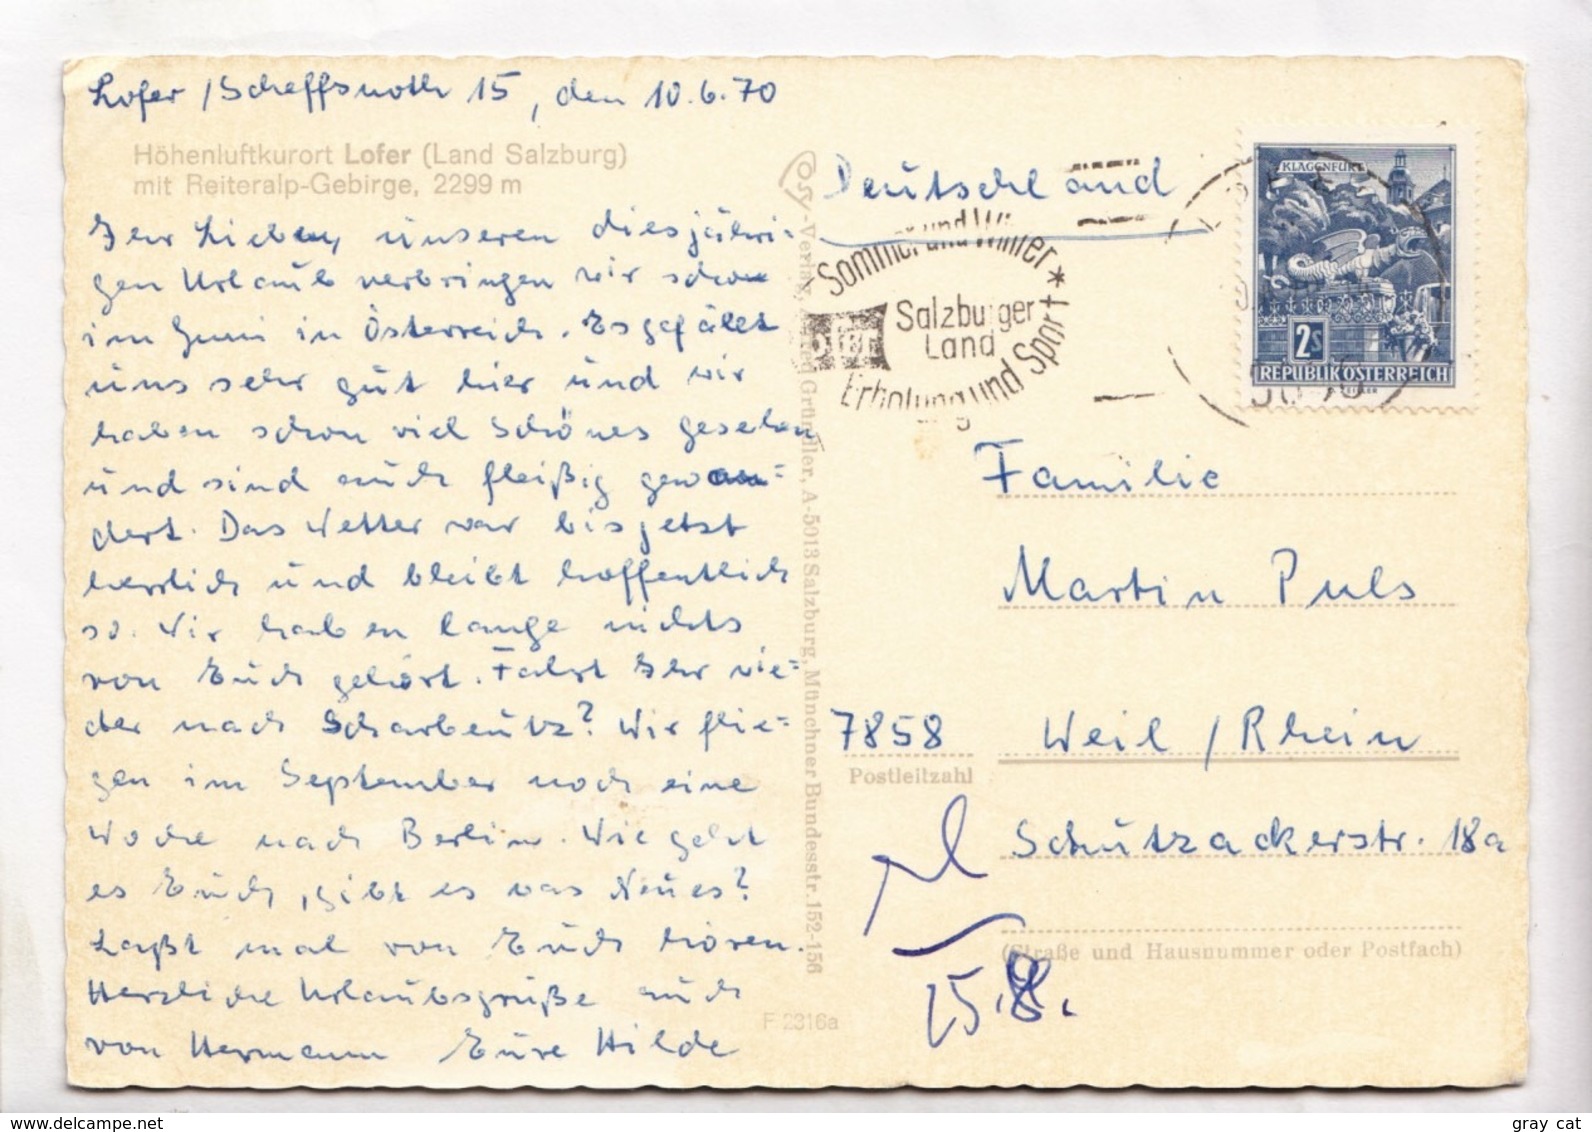 Lofer / Scheffsnoth 15, den 10.6.70
Höhenluftkurort Lofer (Land Salzburg)
mit Reiteralp-Gebirge, 2299 m
Ihr Lieben, unseren diesjähri-
gen Urlaub verbringen wir schon
im Juni in Österreich. Es gefällt
uns sehr gut hier und wir
haben schon viel Schönes gesehen
und sind auch fleißig gewan-
dert. Das Wetter war bis jetzt
herrlich und bleibt hoffentlich
so. Wir haben lange nichts
von Euch gehört. Fahrt Ihr wie-
der nach Scharbeutz? Wir flie-
gen im September noch eine
Woche nach Berlin. Wie geht
es Euch, gibt es was Neues?
Laßt mal von Euch hören.
Herzliche Urlaubsgrüße auch
von Hermann Eure Hilde
F 2316a
Cosy-Verlag, Alfred Gründler, A-5013 Salzburg, Münchner Bundesstr. 152-156
Deutschland
Sommer und Winter *
Salzburger
Land
Erholung und Sport
KLAGENFURT
2S
REPUBLIK ÖSTERREICH
Familie
Martin Puls
7858 Weil / Rhein
Postleitzahl
Schützackerstr. 18a
(Straße und Hausnummer oder Postfach)
15.8.
www.delcampe.net
gray cat